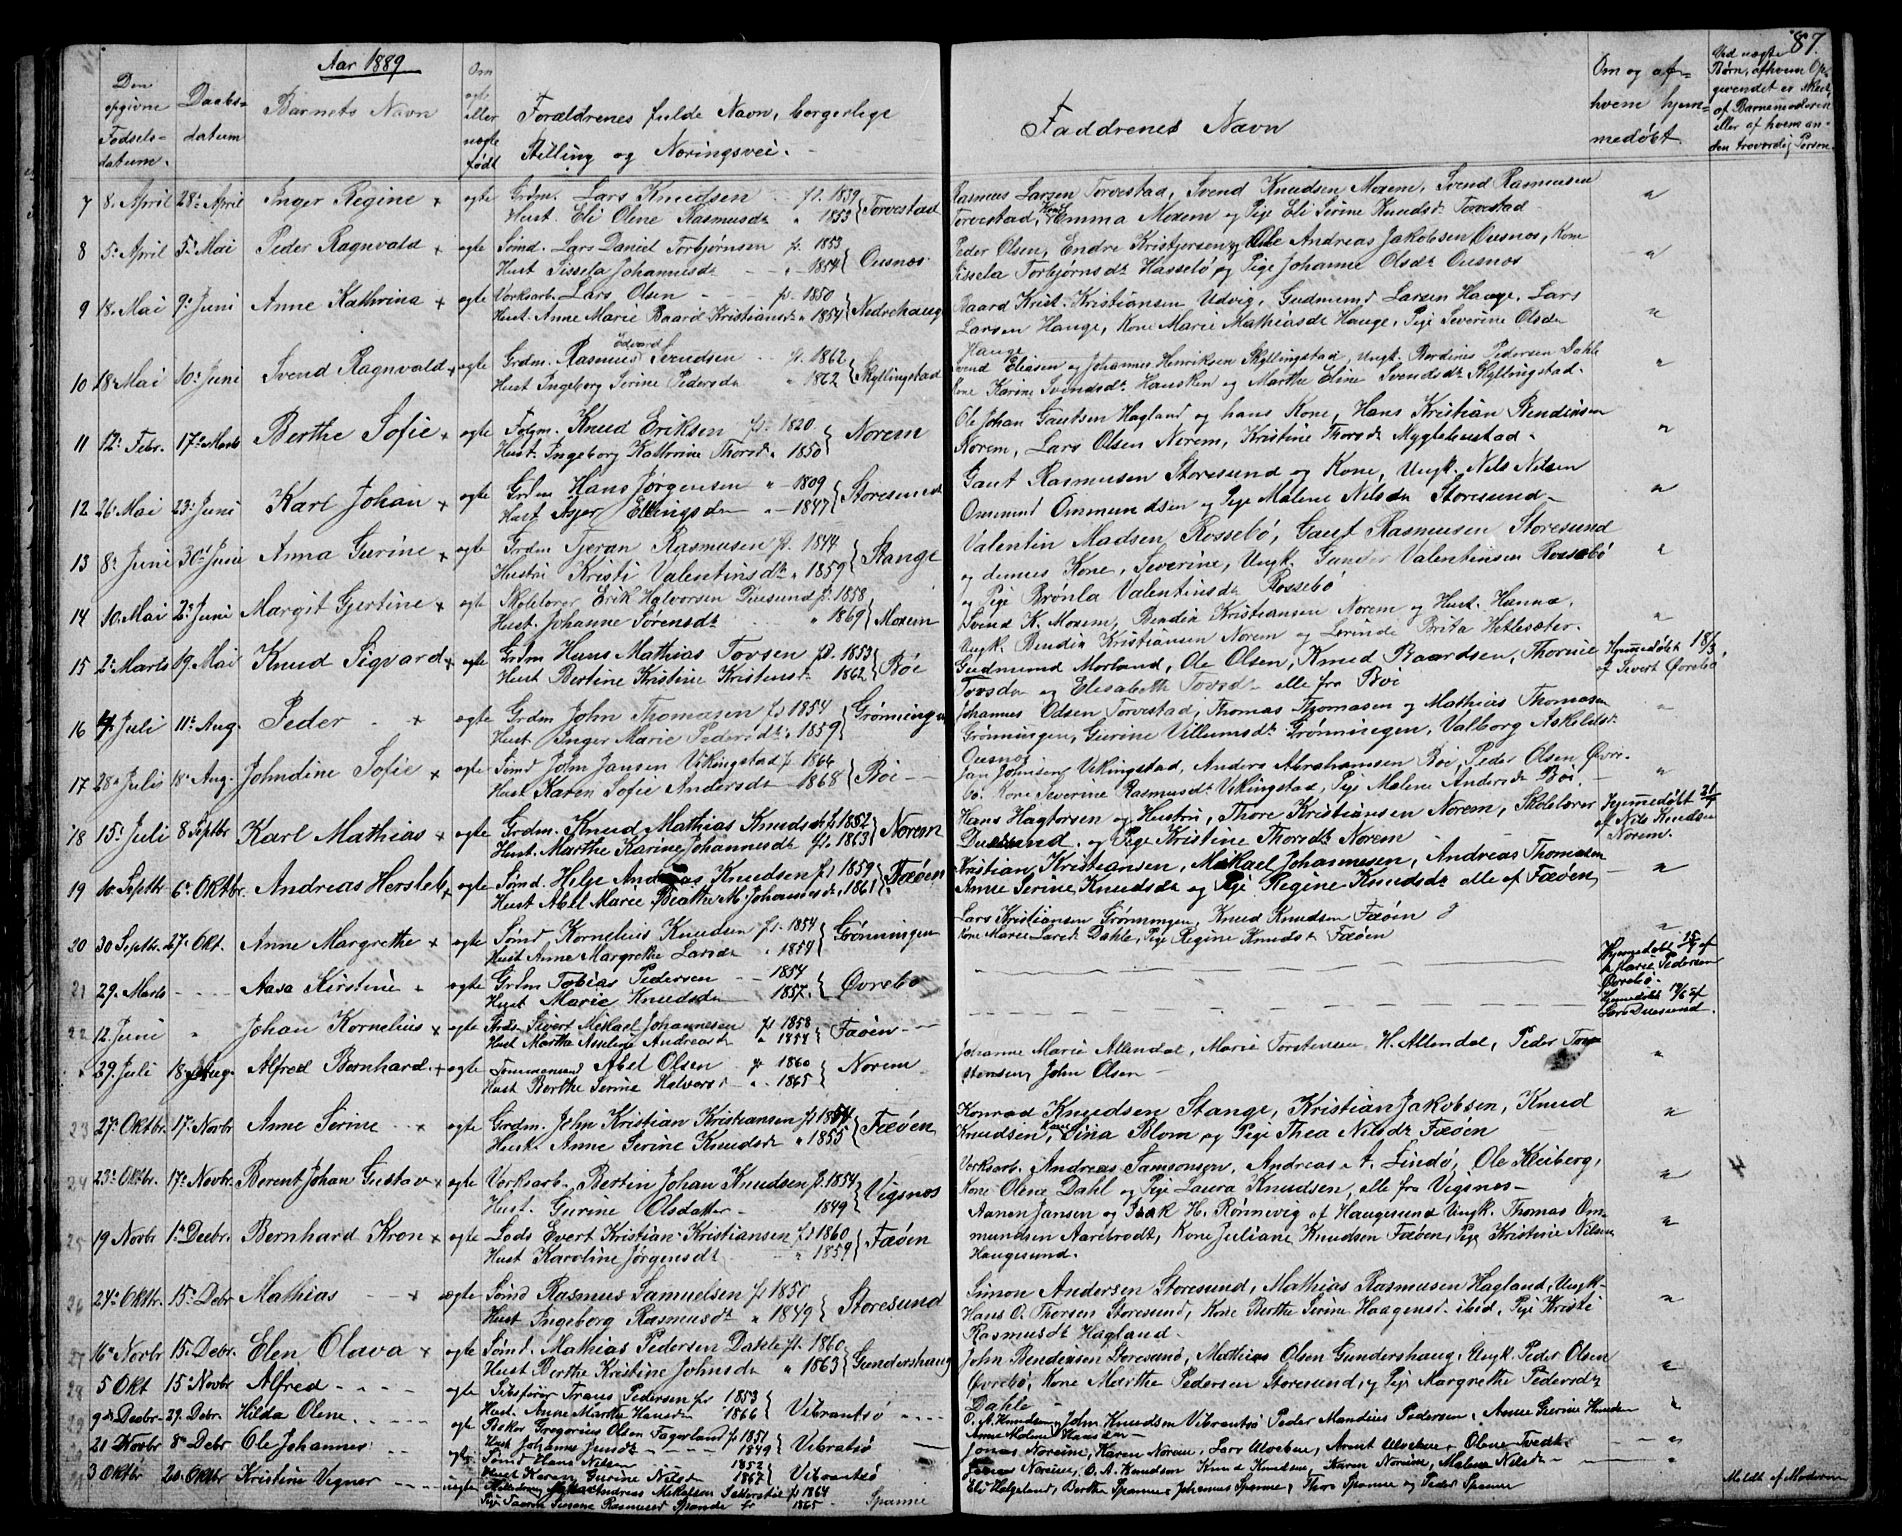 87.
Aar 1889
Den opgivne Fødsels-datum.
Daabs-datum
Barnets Navn
Om ægte eller uægte født
Forældrenes fulde Navn, borgerlige
Stilling og Næringsvei.
Faddrenes Navn
Om og af hvem hjem-medøbt
Ved uægte Børn, af hvem Op-givendet er skeet, af Barnemoderen eller af hvem an-den troværdig Person.
7 8. April 28. April Inger Regine + ægte Grdm. Lars Knudsen f. 1839
Hust. Eli Olene Rasmusdr " 1853 } Torvestad
Rasmus Larsen Torvestad, Svend Knudsen Moxem, Svend Rasmusen
Torvestad, Emma Moxem og Pige Eli Serine Knudsdr Torvestad
8 5. April 5. Mai Peder Ragnvald + ægte Sømd. Lars Daniel Torbjørnsen f. 1853
Hust Sissela Johannesdr " 1854 } Ousnes
Peder Olsen, Endre Kristjersen og Ole Andreas Jakobsen Ousnes, Kone
Sissela Torbjørnsdr Hasselø og Pige Johanne Olsdr Ousnes
9 18. Mai 9. Juni Anne Kathrina + ægte Verksarb. Lars Olsen f. 1850
Hust. Anne Marie Baard Kristiansdr " 1854 } Nedrehaug
Baard Krist. Kristiansen Udvig, Gudmund Larsen Hauge, Lars
Larsen Hauge, Kone Marie Mathiasdr Hauge, Pige Severine Olsdr
Hauge
10 18. Mai 10. Juni Svend Ragnvald + ægte Grdm. Rasmus Edvard Svendsen f. 1862
Hust Ingeborg Serine Pedersdr " 1862 } Skyllingstad
Svend Eliasen og Johannes Henriksen Skyllingstad, Ungk. Bordinus Pedersen Dahle
Kone Karine Svendsdr Hausken og Marthe Eline Svendsdr Skyllingstad
11 12. Febr. 17. Marts Berthe Sofie + ægte Folgm. Knud Eriksen f. 1820
Hust. Ingeborg Kathrine Thorsdr 1850 } Norem
Ole Johan Gautsen Hagland og hans Kone, Hans Kristian Bendiksen
Norem, Lars Olsen Norem, Kristine Thorsdr
12 26. Mai 23. Juni Karl Johan + ægte Grdm Hans Jørgensen " 1809
Hust Elllingsdr " 1847 } Storesund
Gaut Rasmusen Storesund og Kone, Ungk. Nils Nilsen
Ommund Ommundsen og Pige Malene Nilsdr Storesund
13 8. Juni 30. Juni Anna Gurine + ægte Grdm Tjeran Rasmusen f. 1844
Hustru Kristi Valentinsdr " 1859 } Stange
Valentin Madsen Rossebø, Gaut Rasmusen Storesund
og dennes Kone, Severine, Ungk. Gunder Valentinsen Rossebø
og Pige Bronla Valentinsdr Rossebø
14 10. Mai 2. Juni Margit Gjertine + ægte Skolelærer Erik Halvorsen Duesund f. 1858
Hust. Johanne Sørensdr " 1869 } Moxem
Svend K. Moxem, Bendix Kristiansen Norem og Hust. Hanna,
Ungk. Bendix Kristiansen Norem og Brita Hetlesæter
15 2. Marts 19. Mai Knud Sigvard + ægte Grdm Hans Mathias Tovsen f. 1853
Hust Bertine Kristine Kristensdr 1862 } Bøi
Gudmund Morland, Ole Olsen, Knud Baardsen, Thorine
Tovsdr og Elisabeth Tovsd alle fra Bøi
Hjemmedøbt 18/3 af Sivert Øvrebø.
16 4. Juli 11. Aug. Peder + ægte Grdm John Thomasen f. 1854
Hust Inger Marie Pedersdr " 1859 } Grønningen
Johannes Odsen Torvestad, Thomas Thomasen og Mathias Thomasen
Grønningen, Gurine Villumsdr Grønningen, Valborg Askeldsdr
Ousnes
17 28. Juli 18. Aug. Johndine Sofie + ægte Sømd John Jansen Vikingstad f. 1866
Hust Karen Sofie Andersdr 1868 } Bøi
Jan Johnsen Vikingstad, Anders Abrahamsen Bøi, Peder Olsen Øvre-
bø. Kone Severine Rasmusdr Vikingstad, Pige Malene Andersdr Bøi
18 15. Juli 8 Septbr Karl Mathias + ægte Grdm. Knud Mathias Knudsen f. 1852
Hust. Marthe Karine Johannesdr f. 1863 } Norem
Hans Hagtorsen og Hustru, Thore Kristiansen Norem, Skolelærer
Duesund, og Pige Kristine Thorsdr Norem
Hjemmedøbt 21/7 af Nils Knudsen Norem.
19 10. Septbr 6. Oktbr. Andreas Hersleb + ægte Sømd. Helje Andreas Knudsen f. 1859
Hust Abel Marie Beathe M. Johannesdr 1861 } Fæøen
Kristian Kristiansen, Mikael Johannesen, Andreas Thomasen
Anne Serine Knudsdr og Pige Regine Knudsdr alle af Fæøen
20 30 Septbr. 27. Okt. Anne Margrethe + ægte Sømd Kornelius Knudsen f. 1854
Hust Anne Margrethe Larsdr " 1854 } Grønningen
Lars Kristiansen Grønningen, Knud Knudsen Fæøen
Kone Marie Larsdr Dahle, Pige Regine Knudsdr Fæøen
21 29. Marts Aasa Kirstine ægte Grdm Tobias Pedersen 1854
Hust Marie Knudsdr 1857 } Øvrebø
Hjemmedøbt af Marie Pedersen Øvrebø.
22 12. Juni " Johan Kornelius + ægte Sivert Mikael Johannesen f. 1858
Hust Martha Andreasdr " 1854 } Fæøen
Hjemmedøbt af Lars Duesund.
29. Juli 18. Aug. Alfred Bernhard + ægte Tømmermand Abel Olsen f. 1860
Hust Berthe Serine Halvorsdr " 1865 } Norem
Johanne Marie Allendal, Marie Torstensen, H. Allendal, Peder Tor-
stensen, John Olsen
23 27. Oktbr. 17. Novbr Anne Serine + ægte Grdm. John Kristian Kristiansen f. 1854
Hust. Anne Serine Knudsdr " 1855 } Fæøen
Konrad Knudsen Stange, Kristian Jakobsen, Knud
Knudsen, Kone Dina Blom og Pige Thea Nilsdr Fæøen
24 23. Oktbr. 17. Novbr. Berent Johan Gustav + ægte Verksarb. Bertin Johan Knudsen f. 1854
Hust. Gurine Olsdatter 1849 } Vigsnes
Verksarb. Andreas Samsonsen, Andreas A. Lindø, Ole Kleiberg,
Kone Olene Dahl og Pige Laura Knudsen, alle fra Vigsnes
25 19 Novbr 1. Decbr. Bernhard Kron + ægte Lods Evert Kristian Kristiansen f. 1860
Hust Karoline Jørgensdr " 1859 } Fæøen
Aanen Jansen og Isak H. Rønnevig af Haugesund Ungk. Thomas Om-
mundsen Aarebrodt, Kone Juliane Knudsen Fæøen, Pige Kristine Nilsen
Haugesund.
26 24. Oktbr. 15. Debr Mathias + ægte Sømd Rasmus Samuelsen f. 1850
Hust Ingeborg Rasmusdr " 1849 } Storesund
Simon Andersen Storesund, Mathias Rasmusen Hagland, Ungk.
Hans O. Thorsen Storesund, Kone Berthe Serine Haagensd. ibid, Pige Kristi
Rasmusdr Hagland
27 16. Novbr 15. Debr. Elen Olava + ægte Sømd. Mathias Pedersen Dahle f. 1860
Hust Berthe Kristine Johnsdr " 1863 } Gundershaug
John Bendiksen Storesund, Mathias Olsen Gundershaug, Ungk. Peder Olsen
Øvrebø, Kone Marthe Pedersen Storesund, og Pige Margrethe Pedersdr
Dahle
28 5 Okt 15. Novbr Alfred ægte Pedersen f. 1853
Hust. Anne Marthe Hansdr 1866 } Vibrantsø
O. A. Knudsen, John Knudsen Vibrantsø Peder Mandius Pedersen, Anne Gurine Knudsen
Anne Malene Hansdr
29 9. Decbr. 29. Debr. Hilda Olene ægte Bøker Gregorius Olsen Fagerland f. 1851
Hust Johanne 1849 } Vibratsø
Jonas Noreim, Karen Norem, Lars Ulveben, Arent Ulveben, Olene Tvedt
21 Novbr 8. Debr Ole Johannes ægte Sømd Hans Nilsen 1852
Hust Karen Gurine Nilsdr 1867 } Vibrantsø
Jonas Noreim, O. A. Knudsen Knud Knudsen, Karen Noreim, Malene Nilsdr
3 Oktbr 20. Oktbr Kristine Vigner uægte Andreas Mikkelsen f. 1864
Pige Serine Rasmusdr Spanne 1865 Spanne
Eli Helgeland, Berthe Spanne, Johannes Spanne, Thore Spanne og Peder Spanne
Meldt af Moderen